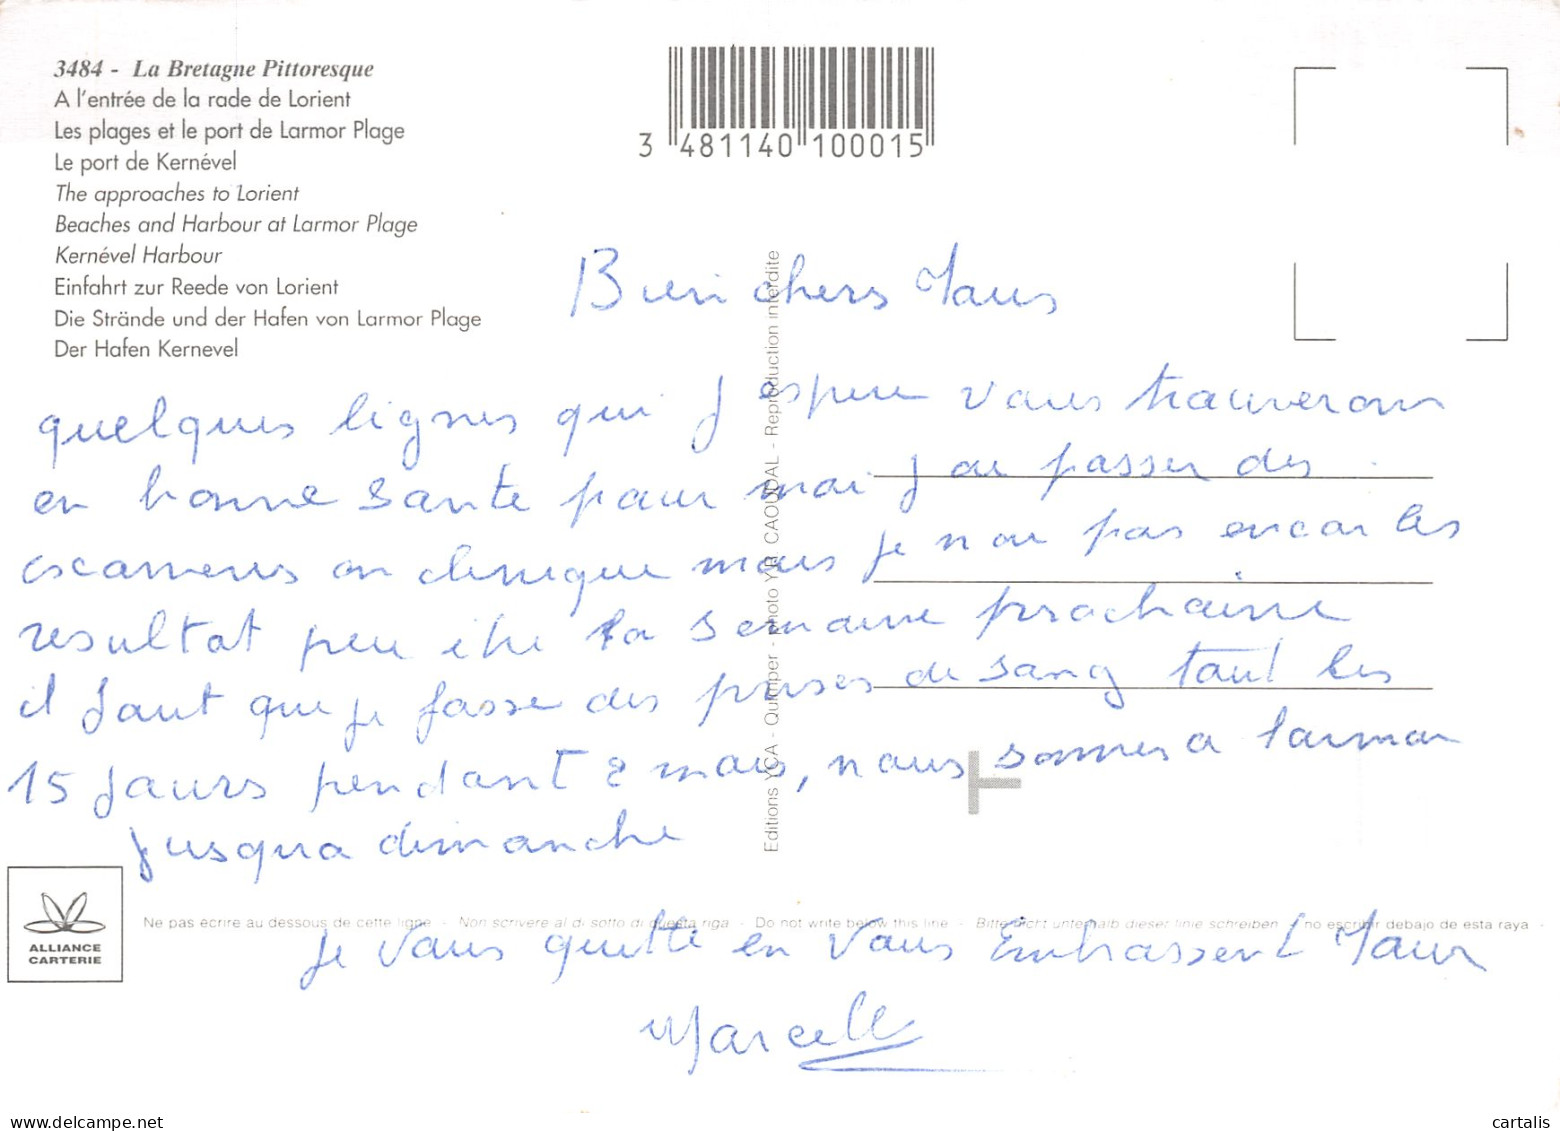 3484 - La Bretagne Pittoresque
A l'entrée de la rade de Lorient
Les plages et le port de Larmor Plage
Le port de Kernével
The approaches to Lorient
Beaches and Harbour at Larmor Plage
Kernével Harbour
Einfahrt zur Reede von Lorient
Die Strände und der Hafen von Larmor Plage
Der Hafen Kernevel
3 481140 100015
Editions YCA - Quimper - photo Y.R. CAOUDAL - Reproduction interdite
Bien chers Tous
quelques lignes qui j espere vous trouverons
en bonne sante pour moi j ai passer des
escamens en clinique mais je n ai pas encor les
resultat peu etre la semaine prochaine
il faut que je fasse des prises de sang tout les
15 jours pendant 2 mois, nous sommes a larmor
jusqua dimanche
ALLIANCE
CARTERIE
Ne pas écrire au dessous de cette ligne - Non scrivere al di sotto di questa riga - Do not write below this line - Bitte nicht unterhalb dieser linie schreiben - no escribir debajo de esta raya -
je vous quitte en vous Embrassent Tous
Marcell
cartalis
www.delcampe.net